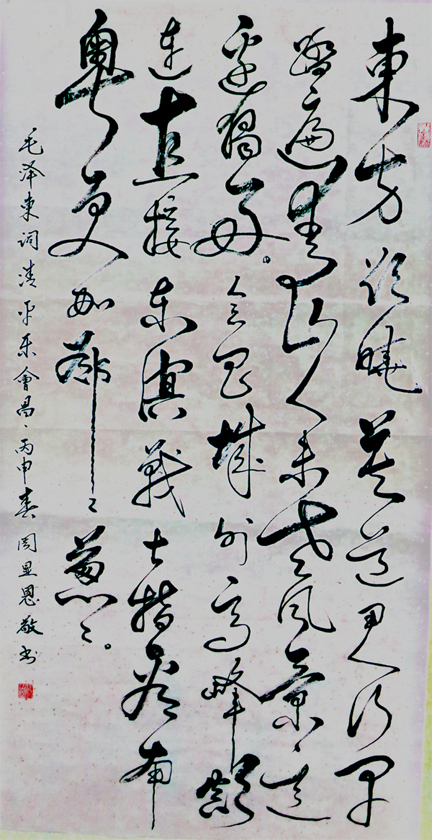 東方欲曉莫道君行早
踏遍青山人未老风景这
边独好。会昌城外高峰颠
连直接东溟战士指看南
粤更加郁々葱々。
毛泽東词清平乐會昌、丙申春周显恩敬书